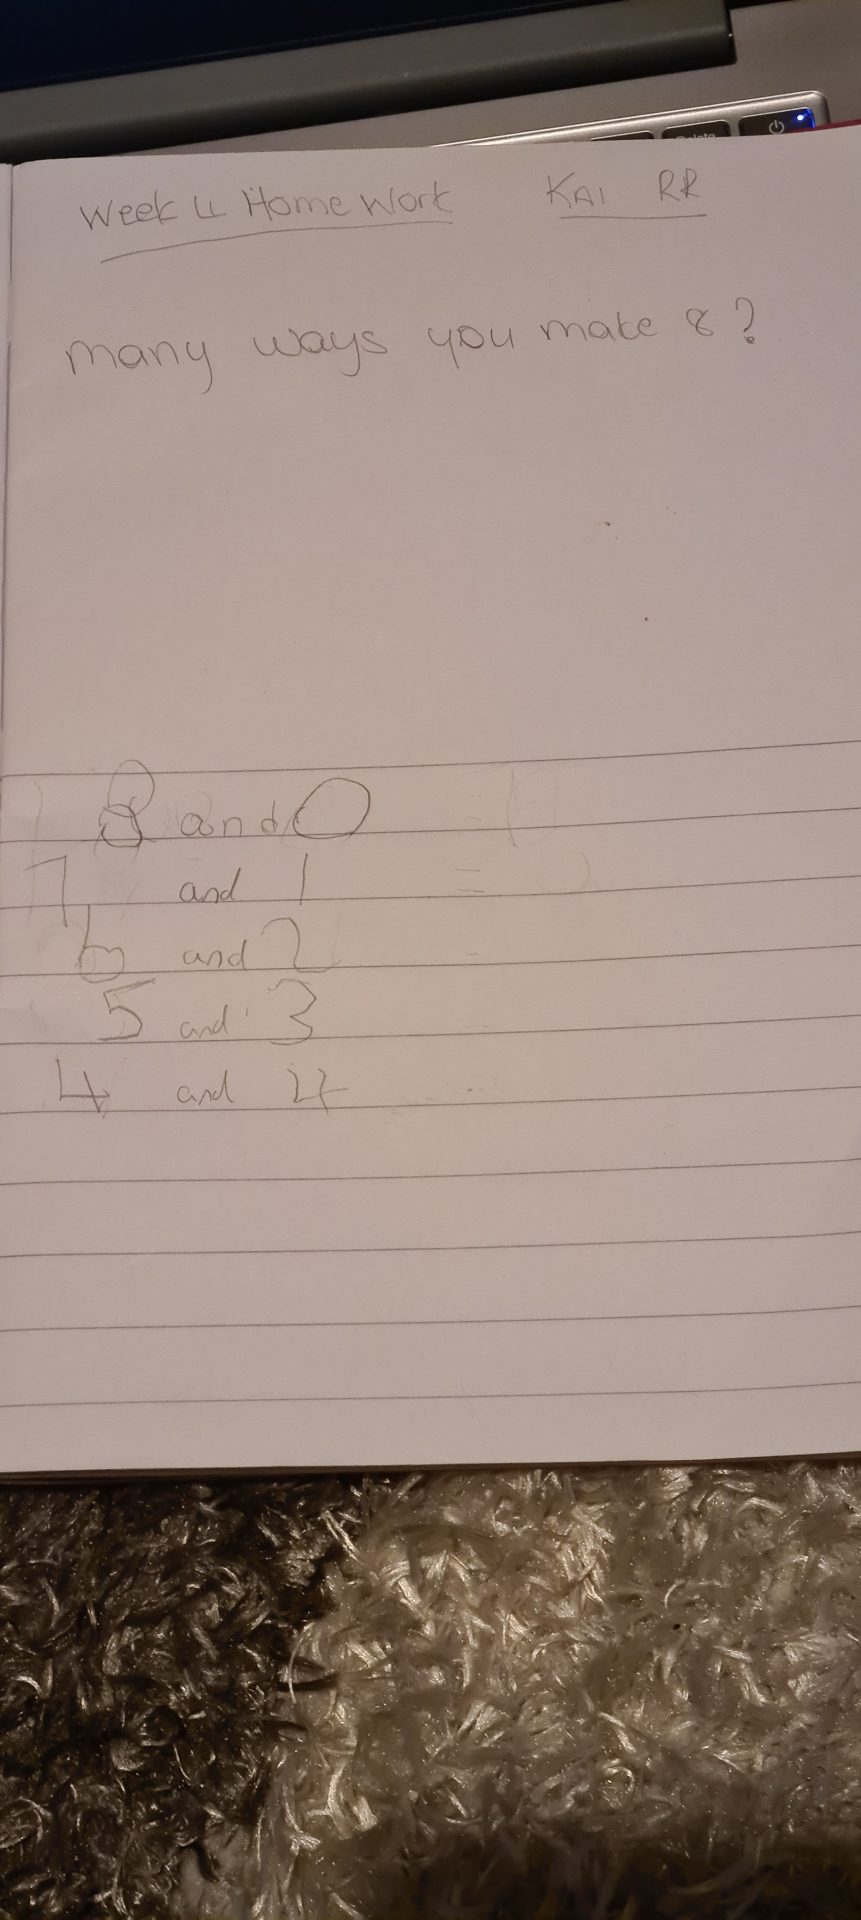 Delete
Week 4 Home Work KAI RR
many ways you make 8?
8 and 0 =
7 and 1 =
6 and 2
5 and 3
4 and 4